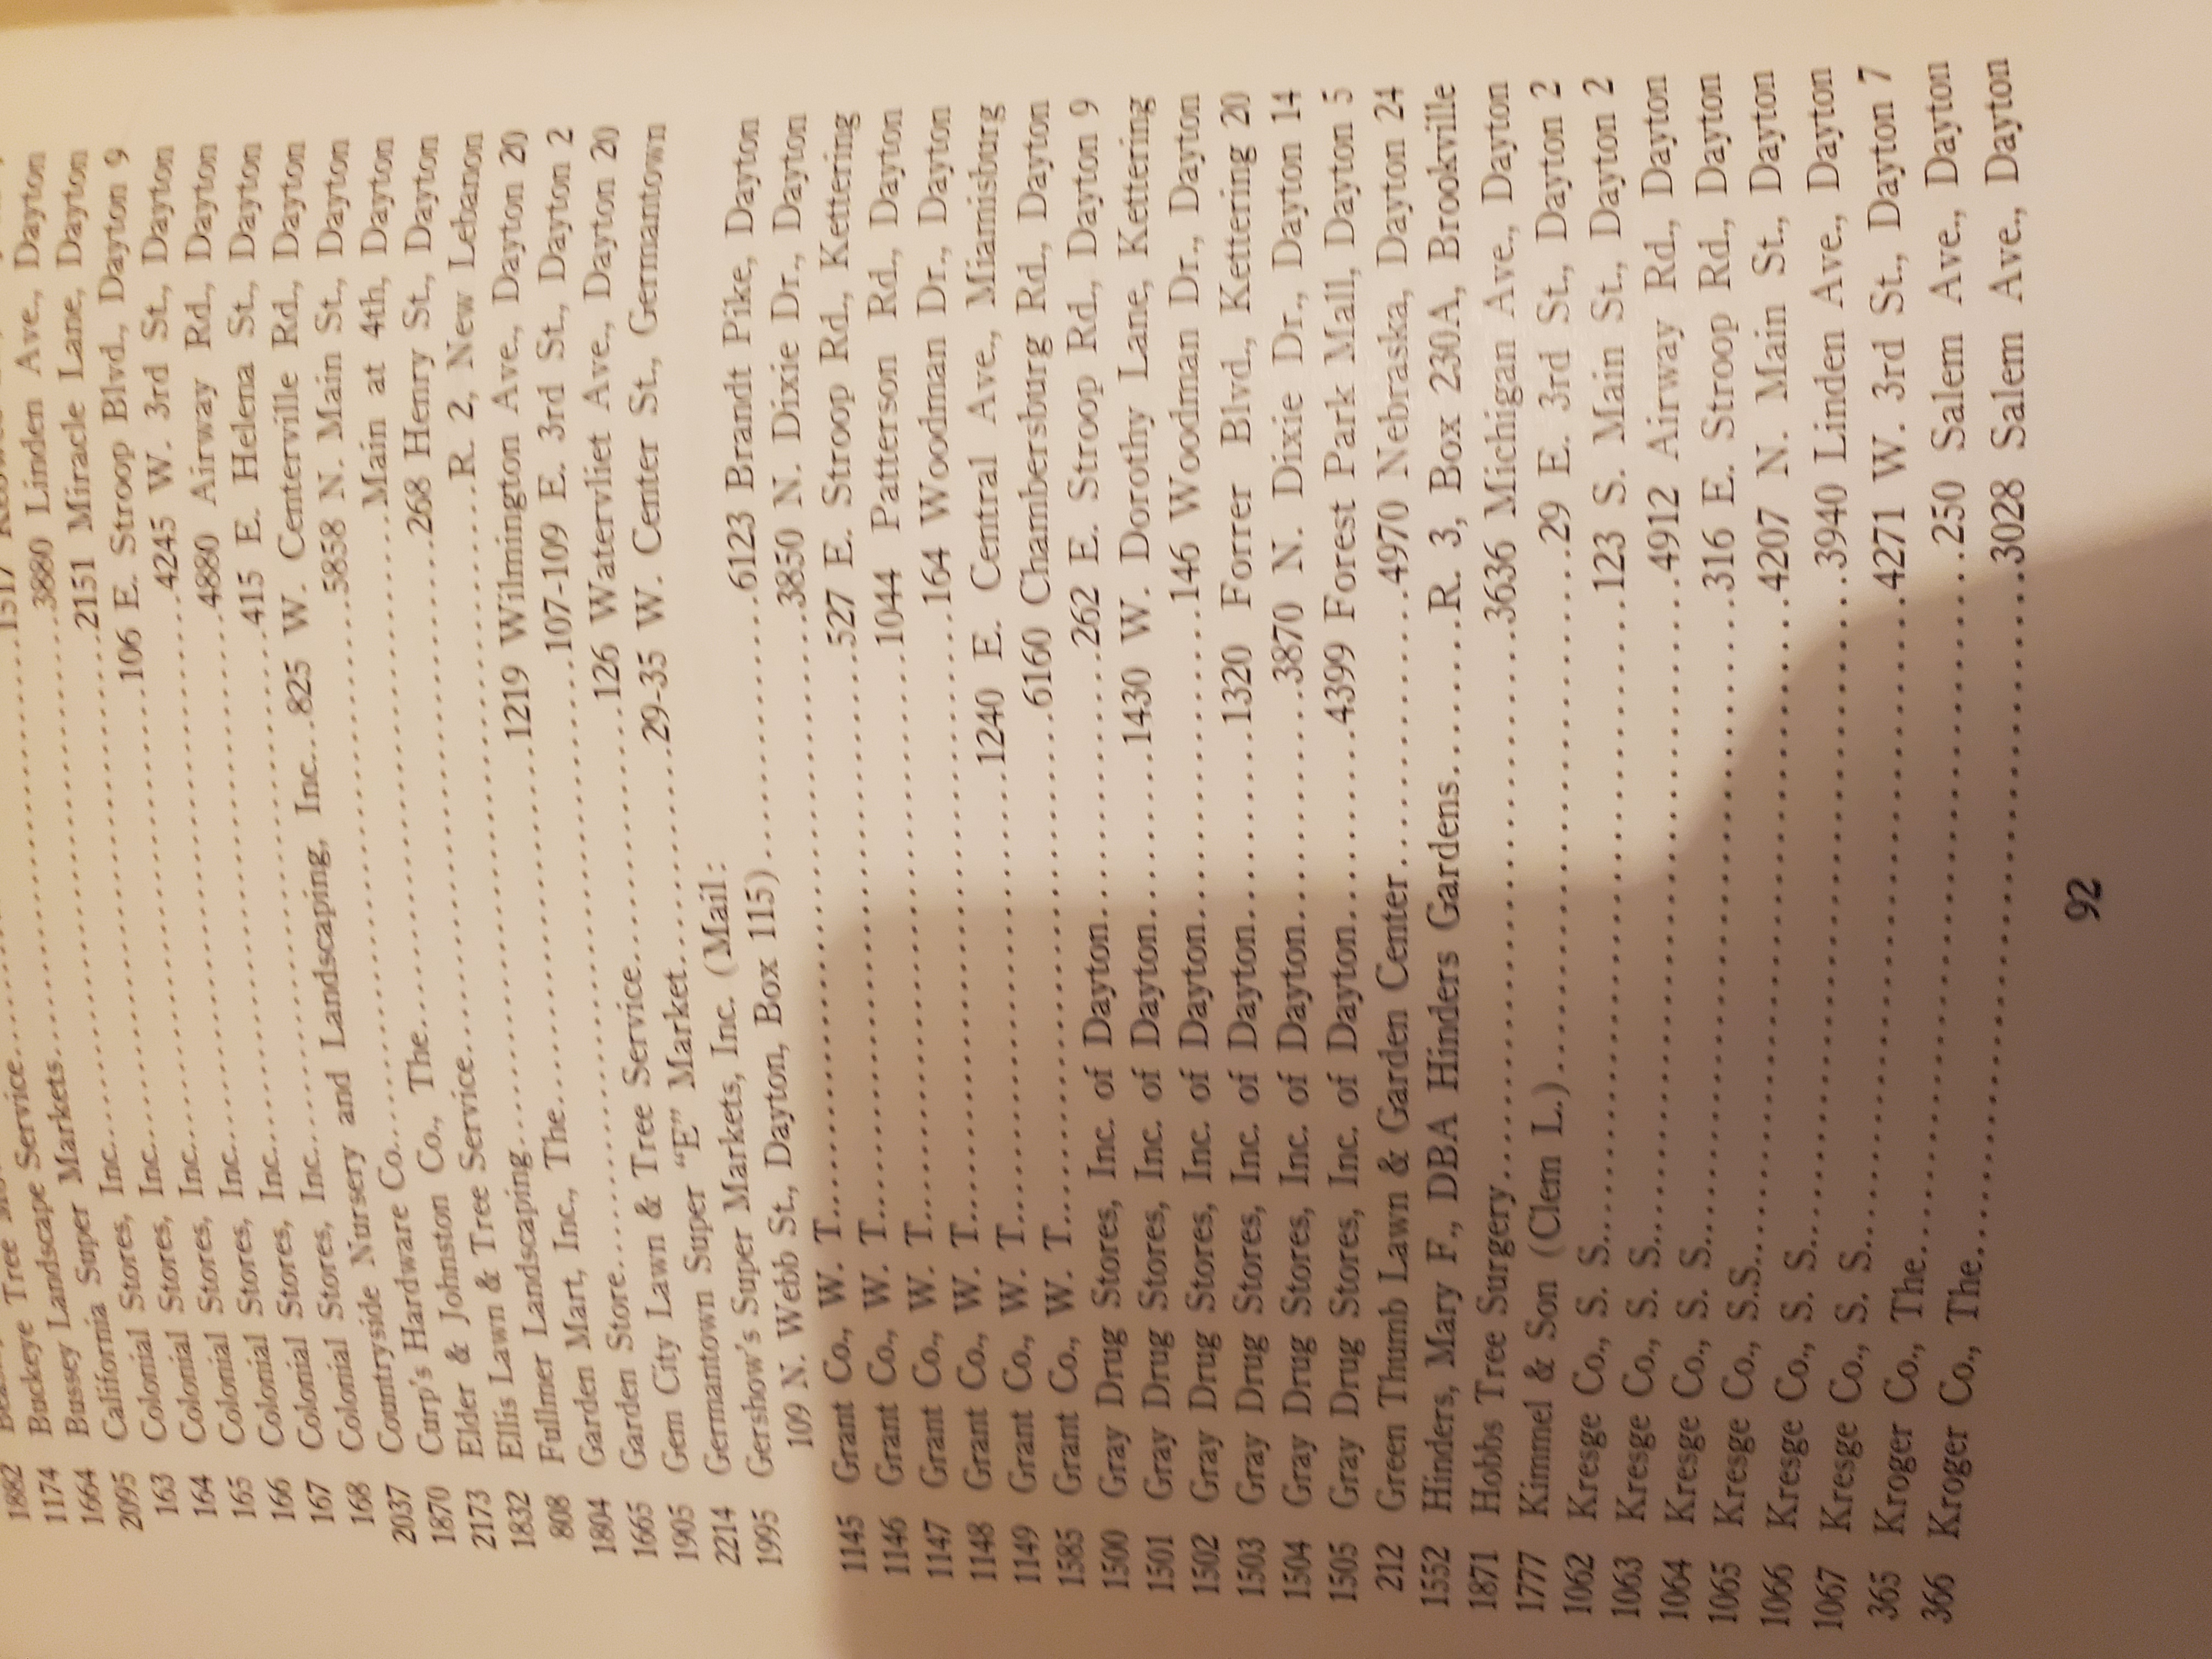 1174 Buckeye Tree
1664 Bussey Landscape Service
2095 California Super Markets....1517
163 Colonial Stores, Inc....3880 Linden Ave., Dayton
164 Colonial Stores, Inc....2151 Miracle Lane, Dayton
165 Colonial Stores, Inc....106 E. Stroop Blvd., Dayton 9
166 Colonial Stores, Inc....4245 W. 3rd St., Dayton
167 Colonial Stores, Inc....4880 Airway Rd., Dayton
168 Colonial Stores, Inc....415 E. Helena St., Dayton
2037 Countryside Nursery and Landscaping, Inc...825 W. Centerville Rd., Dayton
1870 Curp's Hardware Co....5858 N. Main St., Dayton
2173 Elder & Johnston Co., The....Main at 4th, Dayton
1832 Ellis Lawn & Tree Service....268 Henry St., Dayton
808 Fullmer Landscaping....R. 2, New Lebanon
1804 Garden Mart, Inc., The....1219 Wilmington Ave., Dayton 20
1665 Garden Store....107-109 E. 3rd St., Dayton 2
1905 Gem City Lawn & Tree Service....126 Watervliet Ave., Dayton 20
2214 Germantown Super "E" Market....29-35 W. Center St., Germantown
1995 Gershow's Super Markets, Inc. (Mail:
109 N. Webb St., Dayton, Box 115)....6123 Brandt Pike, Dayton
1145 Grant Co., W. T....3850 N. Dixie Dr., Dayton
1146 Grant Co., W. T....527 E. Stroop Rd., Kettering
1147 Grant Co., W. T....1044 Patterson Rd., Dayton
1148 Grant Co., W. T....164 Woodman Dr., Dayton
1149 Grant Co., W. T....1240 E. Central Ave., Miamisburg
1585 Grant Co., W. T....6160 Chambersburg Rd., Dayton
1500 Gray Drug Stores, Inc. of Dayton....262 E. Stroop Rd., Dayton 9
1501 Gray Drug Stores, Inc. of Dayton....1430 W. Dorothy Lane, Kettering
1502 Gray Drug Stores, Inc. of Dayton....146 Woodman Dr., Dayton
1503 Gray Drug Stores, Inc. of Dayton....1320 Forrer Blvd., Kettering 20
1504 Gray Drug Stores, Inc. of Dayton....3870 N. Dixie Dr., Dayton 14
1505 Gray Drug Stores, Inc. of Dayton....4399 Forest Park Mall, Dayton 5
212 Green Thumb Lawn & Garden Center....4970 Nebraska, Dayton 24
1552 Hinders, Mary F., DBA Hinders Gardens....R. 3, Box 230A, Brookville
1871 Hobbs Tree Surgery....3636 Michigan Ave., Dayton
1777 Kimmel & Son (Clem L.)....29 E. 3rd St., Dayton 2
1062 Kresge Co., S. S....123 S. Main St., Dayton 2
1063 Kresge Co., S. S....4912 Airway Rd., Dayton
1064 Kresge Co., S. S....316 E. Stroop Rd., Dayton
1065 Kresge Co., S.S....4207 N. Main St., Dayton
1066 Kresge Co., S. S....3940 Linden Ave., Dayton
1067 Kresge Co., S. S....4271 W. 3rd St., Dayton 7
365 Kroger Co., The....250 Salem Ave., Dayton
366 Kroger Co., The....3028 Salem Ave., Dayton
92